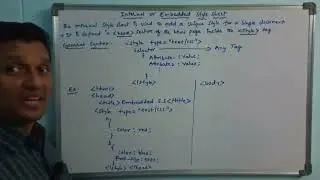 Internal or Embedded Style Sheet
The internal Style Sheet is used to add a unique style for a single document
It is defined in <head> section of the html page inside the <style> tag
General Syntax:
<style type="text/css">
Selector
Any Tag
{
Attribute1: Value;
Attribute2: Value;
}
</style>
Ex:
<html>
<head>
<title>Embedded S.S</title>
<style type="text/css">
{
color: red;
}
{
color: blue;
</style> </head>
<body>